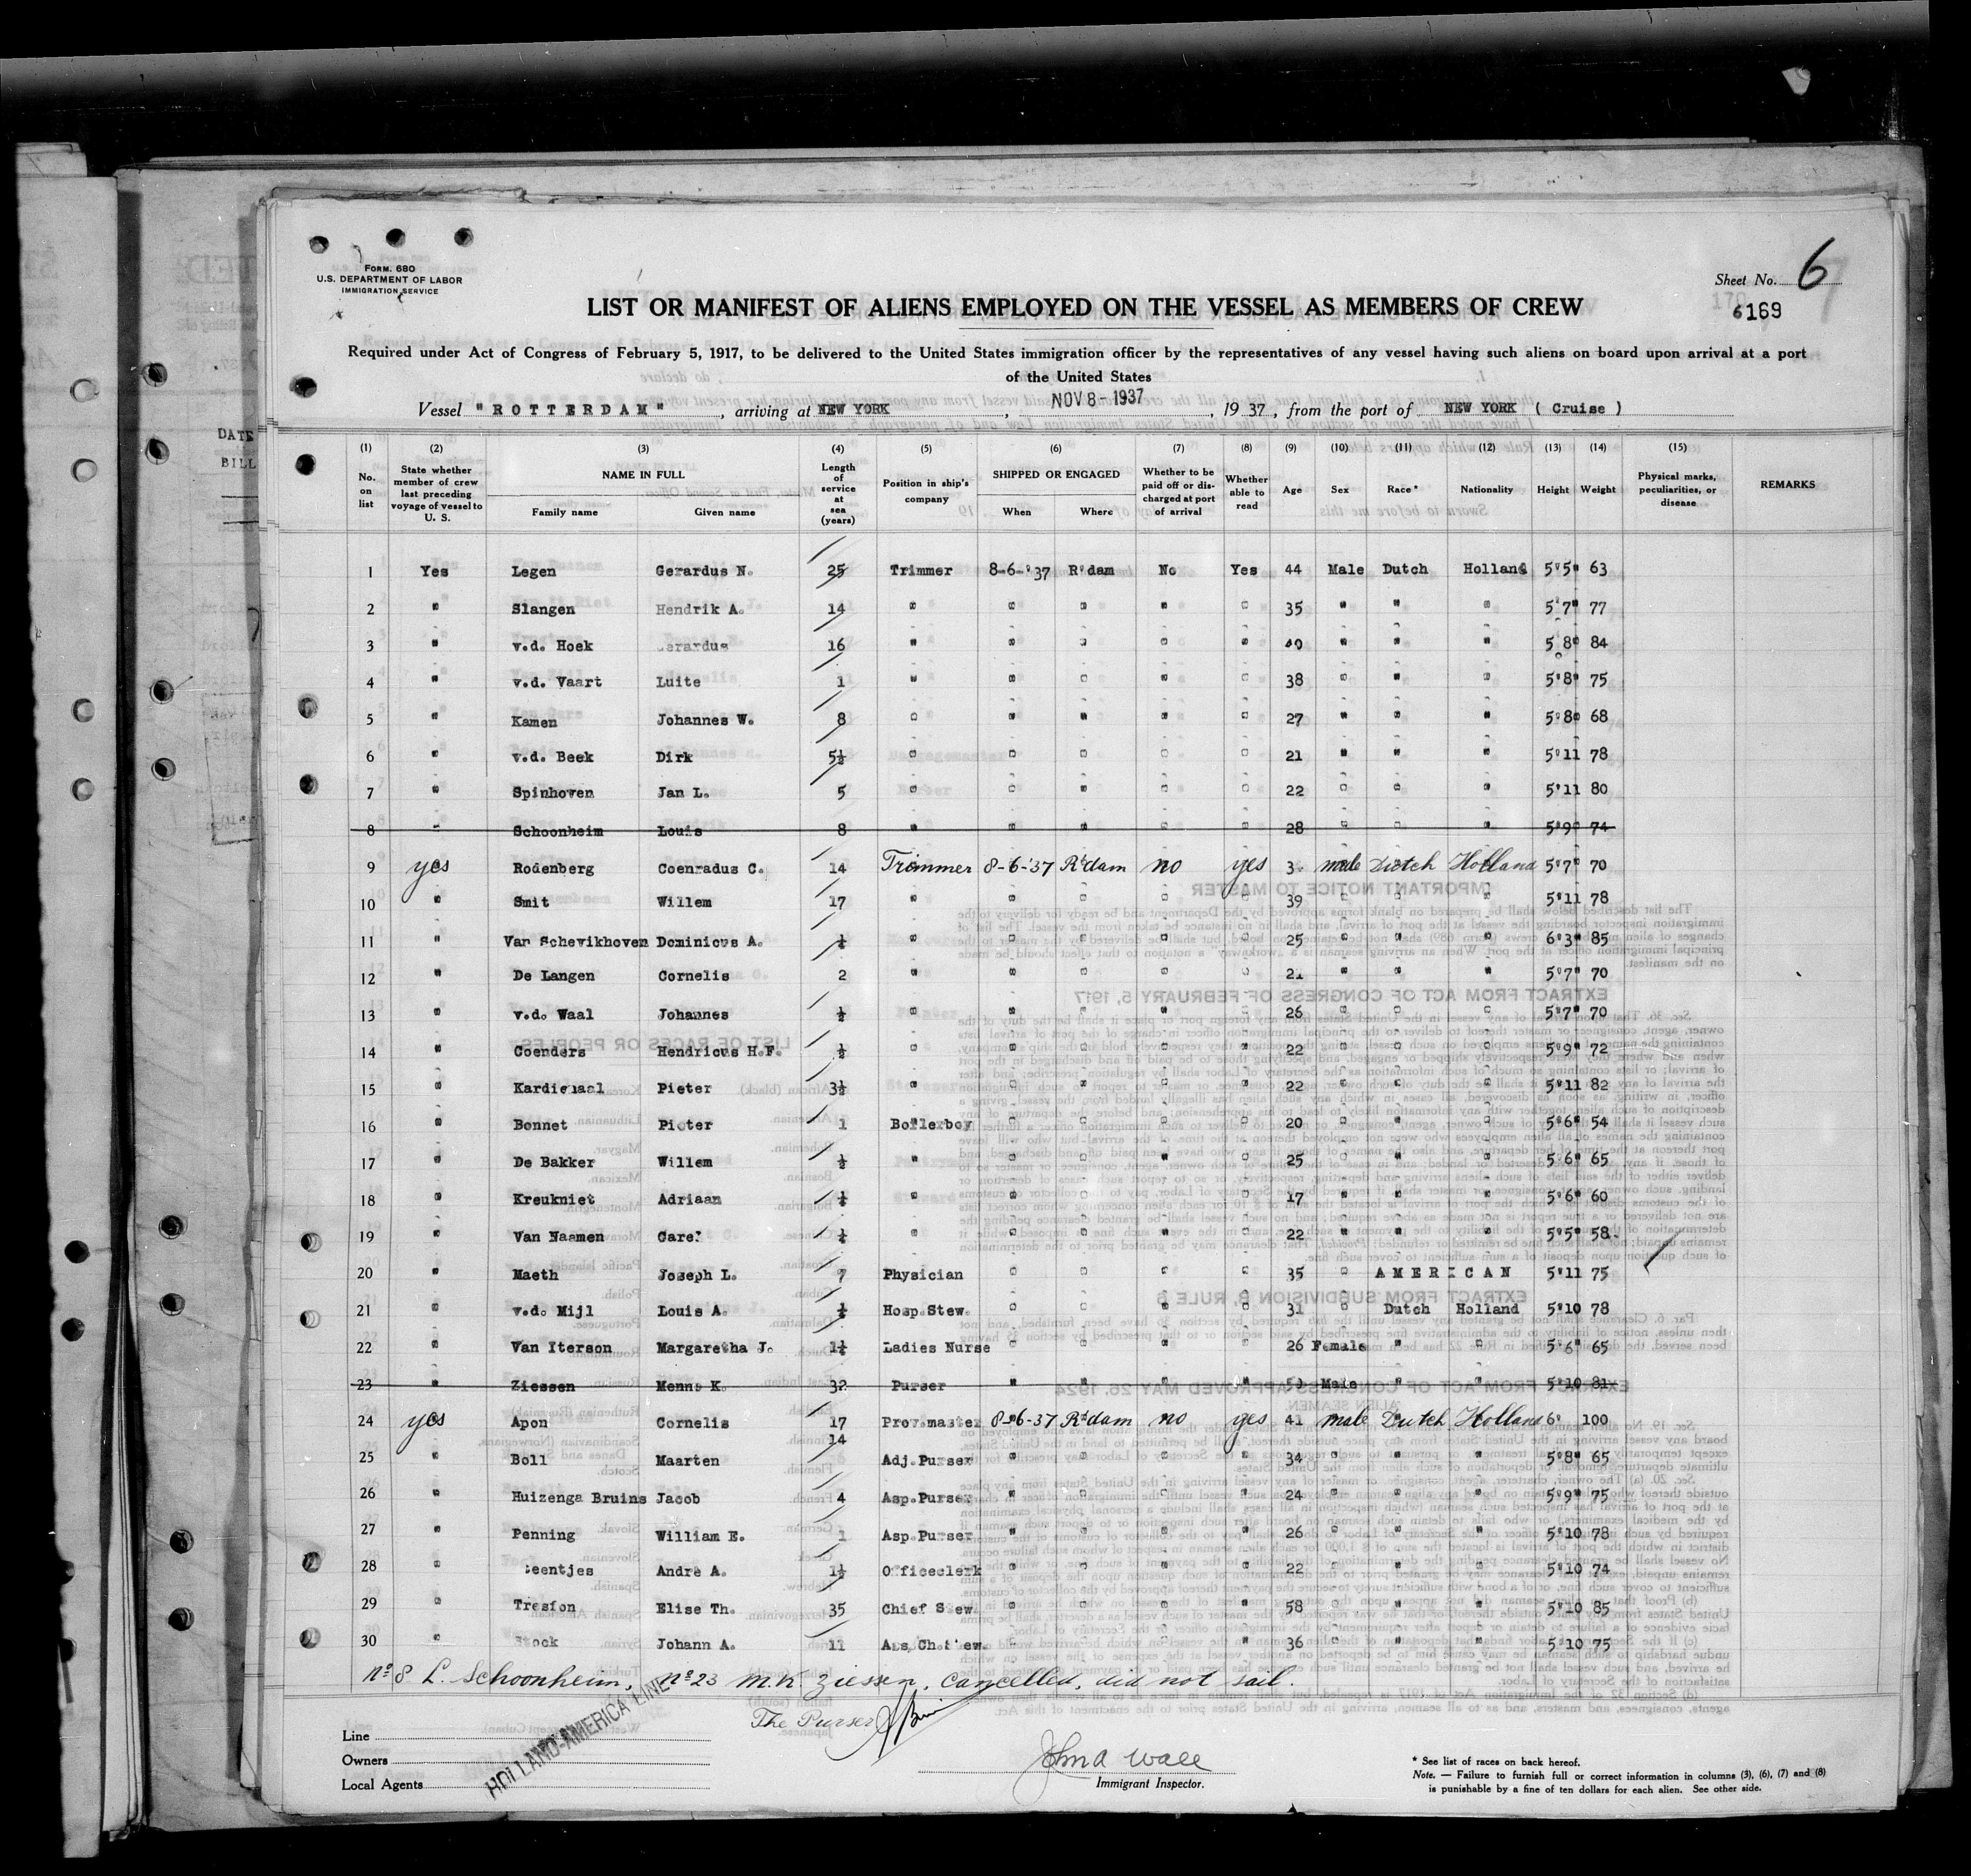 FORM. 680
U.S. DEPARTMENT OF LABOR
IMMIGRATION SERVICE
Sheet No. 6
6169
LIST OR MANIFEST OF ALIENS EMPLOYED ON THE VESSEL AS MEMBERS OF CREW
Required under Act of Congress of February 5, 1917, to be delivered to the United States immigration officer by the representatives of any vessel having such aliens on board upon arrival at a port
of the United States
Vessel "ROTTERDAM", arriving at NEW YORK, NOV 8-1937, 1937, from the port of NEW YORK ( Cruise )
(1) (2) (3) (4) (5) (6) (7) (8) (9) (10) (11) (12) (13) (14) (15)
No. on list State whether member of crew last preceding voyage of vessel to U. S. NAME IN FULL Family name Given name Length of service at sea (years) Position in ship's company SHIPPED OR ENGAGED When Where Whether to be paid off or discharged at port of arrival Whether able to read Age Sex Race* Nationality Height Weight Physical marks, peculiarities, or disease REMARKS
1 Yes Legen Gerardus N. 25 Trimmer 8-6-'37 R'dam No Yes 44 Male Dutch Holland 5'5" 63
2 " Slangen Hendrik A. 14 " " " " " 35 " " " 5'7" 77
3 " v.d. Hoek 16 " " " " " " " " 5'8" 84
4 " v.d. Vaart Luite 1 " " " " " 38 " " " 5'8" 75
5 " Kamen Johannes W. 8 " " " " " 27 " " " 5'8" 68
6 " v.d. Beek Dirk 5½ " " " " " 21 " " " 5'11 78
7 " Spinhoven Jan L. 5 " " " " " 22 " " " 5'11 80
8 " Schoonheim Louis 8 " " " " " 28 " " " 5'9" 74
9 yes Rodenberg Coenradus C. 14 Trimmer 8-6-'37 R'dam no yes male Dutch Holland 5'7" 70
10 " Smit Willem 17 " " " " " 39 " " " 5'11 78
11 " Van Schevikhoven Dominicus A. ½ " " " " " 25 " " " 6'3" 85
12 " De Langen Cornelis 2 " " " " " 21 " " " 5'7" 70
13 " v.d. Waal Johannes ½ " " " " " 26 " " " 5'7" 70
14 " Coenders Hendricus H.F. ½ " " " " " 22 " " " 5'9" 72
15 " Kardinaal Pieter 3½ " " " " " 22 " " " 5'11 82
16 " Bonnet Pieter 1 Boilerboy " " " " 20 " " " 5'6" 54
17 " De Bakker Willem ½ " " " " " 25 " " " 5'6" 65
18 " Kreukniet Adriaan ½ " " " " " 17 " " " 5'6" 60
19 " Van Naamen Carel ½ " " " " " 22 " " " 5'5" 58
20 " Maeth Joseph L. 7 Physician " " " " 35 " AMERICAN 5'11 75
21 " v.d. Mijl Louis A. ½ Hosp.Stew. " " " " 31 " Dutch Holland 5'10 78
22 " Van Iterson Margaretha J. 1½ Ladies Nurse " " " " 26 Female " " 5'6" 65
23 " Ziessen Menno K. 32 Purser " " " " Male " " 5'10 81
24 yes Apon Cornelis 17 Prov.master 8-6-37 R'dam no yes 41 male Dutch Holland 6' 100
25 " Boll Maarten 14 Adj.Purser " " " " 34 " " " 5'8" 65
26 " Huizenga Bruins Jacob 4 Asp.Purser " " " " 24 " " " 5'9" 75
27 " Penning William E. 1 Asp.Purser " " " " 26 " " " 5'10 78
28 " Andre A. 1½ Officeclerk " " " " 22 " " " 5'10 74
29 " Tresfon Elise Th. 35 Chief Stew. " " " " 58 " " " 5'10 85
30 " Stock Johann A. 11 " " " " 36 " " " 5'10 75
Nº 8 L. Schoonheim, nº 23 M.K. Ziessen, cancelled, did not sail.
The Purser
Line
Owners
Local Agents
HOLLAND-AMERICA LINE
John A Wall
Immigrant Inspector.
* See list of races on back hereof.
Note. — Failure to furnish full or correct information in columns (3), (6), (7) and (8)
is punishable by a fine of ten dollars for each alien. See other side.